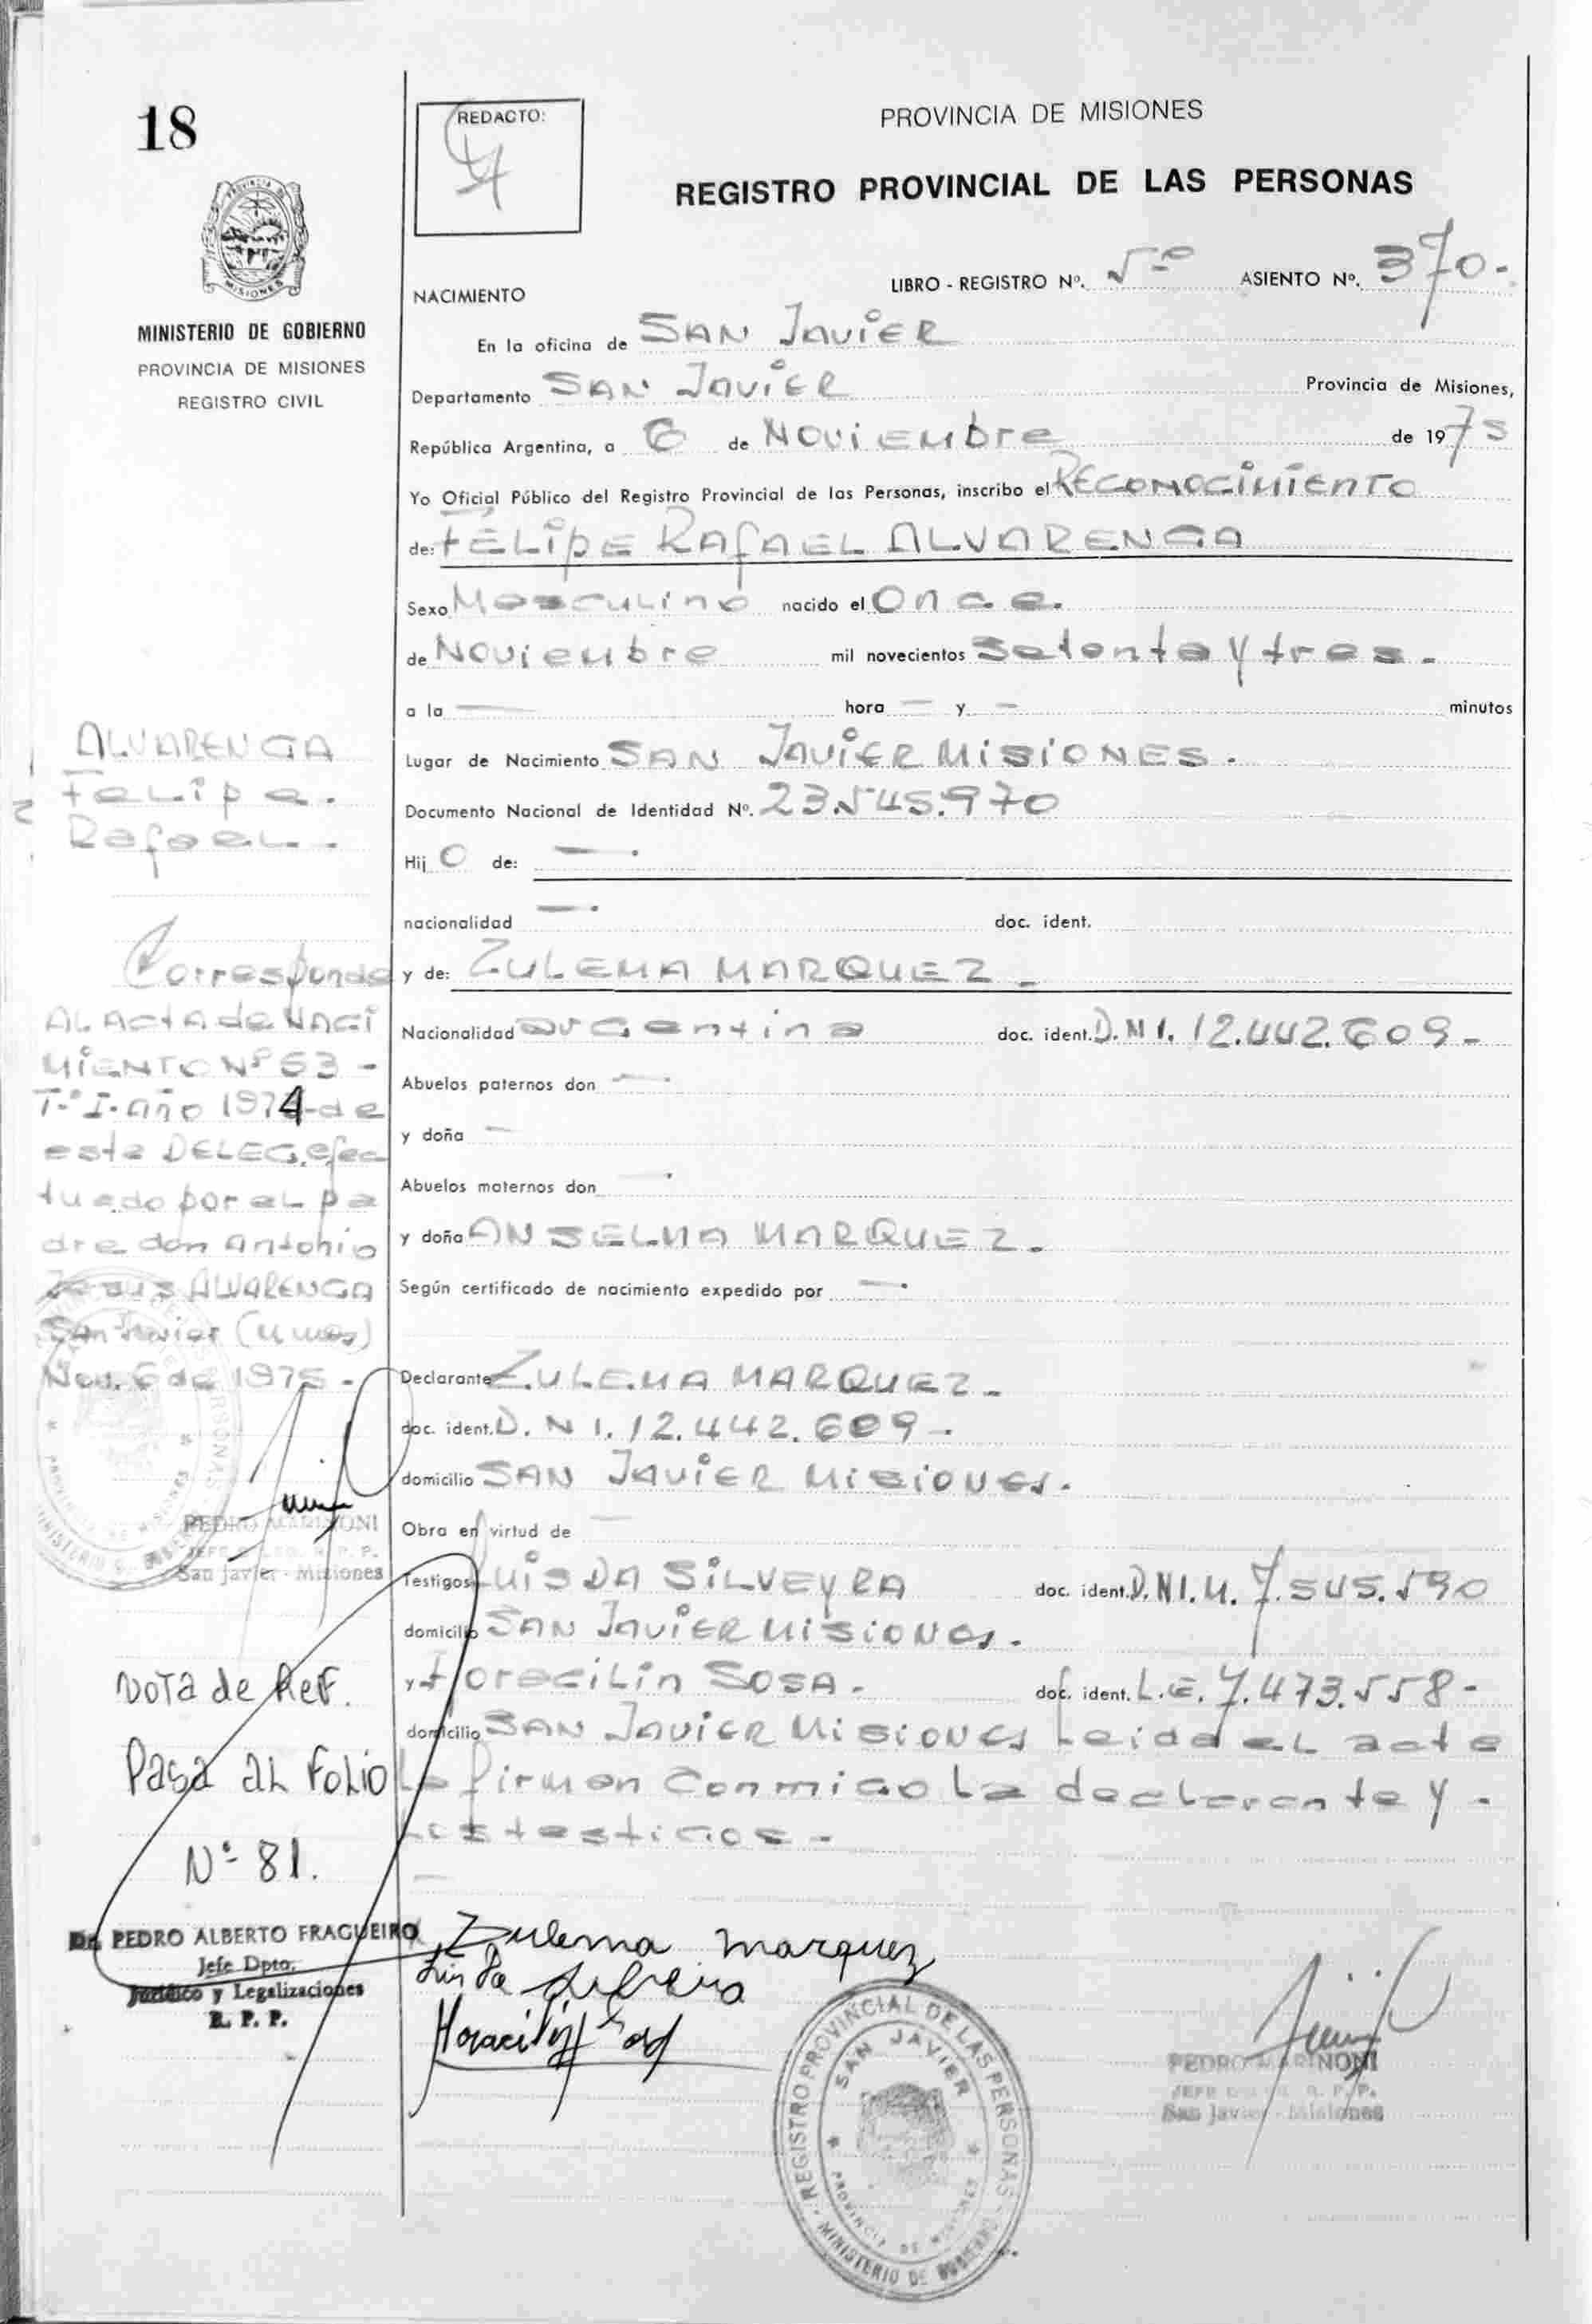 18
REDACTO:
PROVINCIA DE MISIONES
REGISTRO PROVINCIAL DE LAS PERSONAS
MINISTERIO DE GOBIERNO
PROVINCIA DE MISIONES
REGISTRO CIVIL
LIBRO - REGISTRO Nº. 5-º ASIENTO Nº. 370.-
NACIMIENTO
En la oficina de SAN JAVIER
Departamento SAN JAVIER Provincia de Misiones,
República Argentina, a 6 de NOVIEMbre de 1975
Yo Oficial Público del Registro Provincial de las Personas, inscribo el RECONOCIMIENTO
de: FELIPE RAfAEL ALVARENGA
Sexo Masculino nacido el Once.
de Noviembre mil novecientos Setenta y tres.-
a la — hora — y — minutos
Lugar de Nacimiento SAN JAVIER MISIONES.
Documento Nacional de Identidad Nº. 23.545.970
Hij O de: —.
nacionalidad —. doc. ident.
y de: ZULEMA MARQUEZ.-
Nacionalidad argentina doc. ident. D.N I. 12.442.609-
Abuelos paternos don —.
y doña —
Abuelos maternos don .
y doña ANSELMA MARQUEZ.
Según certificado de nacimiento expedido por —.
Declarante ZULEMA MARQUEZ.-
doc. ident. D.N I. 12.442.609-.
domicilio SAN JAVIER MISIONES.
Obra en virtud de —
Testigos LUIS DA SILVEYRA doc. ident. D.N I.M. 7.545.590
domicilio SAN JAVIER MISIONES.
y Horacilin SOSA. doc. ident. L.E. 7.473.558-
domicilio SAN JAVIER MISIONES Leida el acta
La firman conmigo la declarante y -
Los testigos.-
ALVARENGA
Felipe.
Rafael.
Corresponde
AL Acta de NACI
MIENTO Nº 53-
T-º I. Año 1974-de
esta DELEG. efec
tuado por el pa
dre don Antonio
Jesus ALVARENGA
San Javier (Mnes)
Nov. 6 de 1975-
PEDRO MARINONI
JEFE DELEG. R. P. P.
San Javier - Misiones
Nota de Ref.
Pasa al folio
Nº- 81.
Dr. PEDRO ALBERTO FRAGUEIRO
Jefe Dpto.
Jurídico y Legalizaciones
R. P. P.
Zulema Marquez
Luis Da Silveira
REGISTRO PROVINCIAL DE LAS PERSONAS
SAN JAVIER
PROVINCIA DE MISIONES
MINISTERIO DE GOBIERNO
PEDRO MARINONI
JEFE DELEG. R. P. P.
San Javier - Misiones